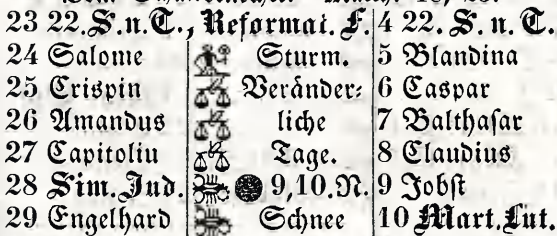 23 22. S. n. T., Reformat. F. 4 22. S. n. T.
24 Salome Sturm. 5 Blandina
25 Crispin Veränder- 6 Caspar
26 Amandus liche 7 Balthasar
27 Capitolin Tage. 8 Claudius
28 Sim. Jud. 9,10. N. 9 Jobst
29 Engelhard Schnee 10 Mart. Lut.